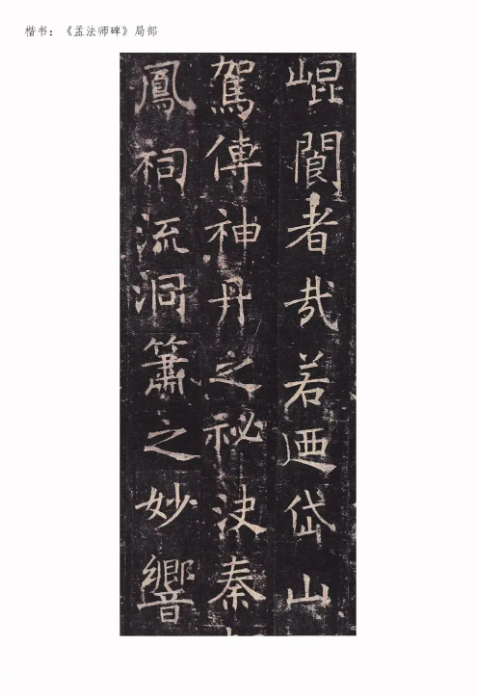 楷书：《孟法师碑》局部
崐閬者哉若迺岱山
駕傳神丹之祕決秦
鳳祠流洞簫之妙響